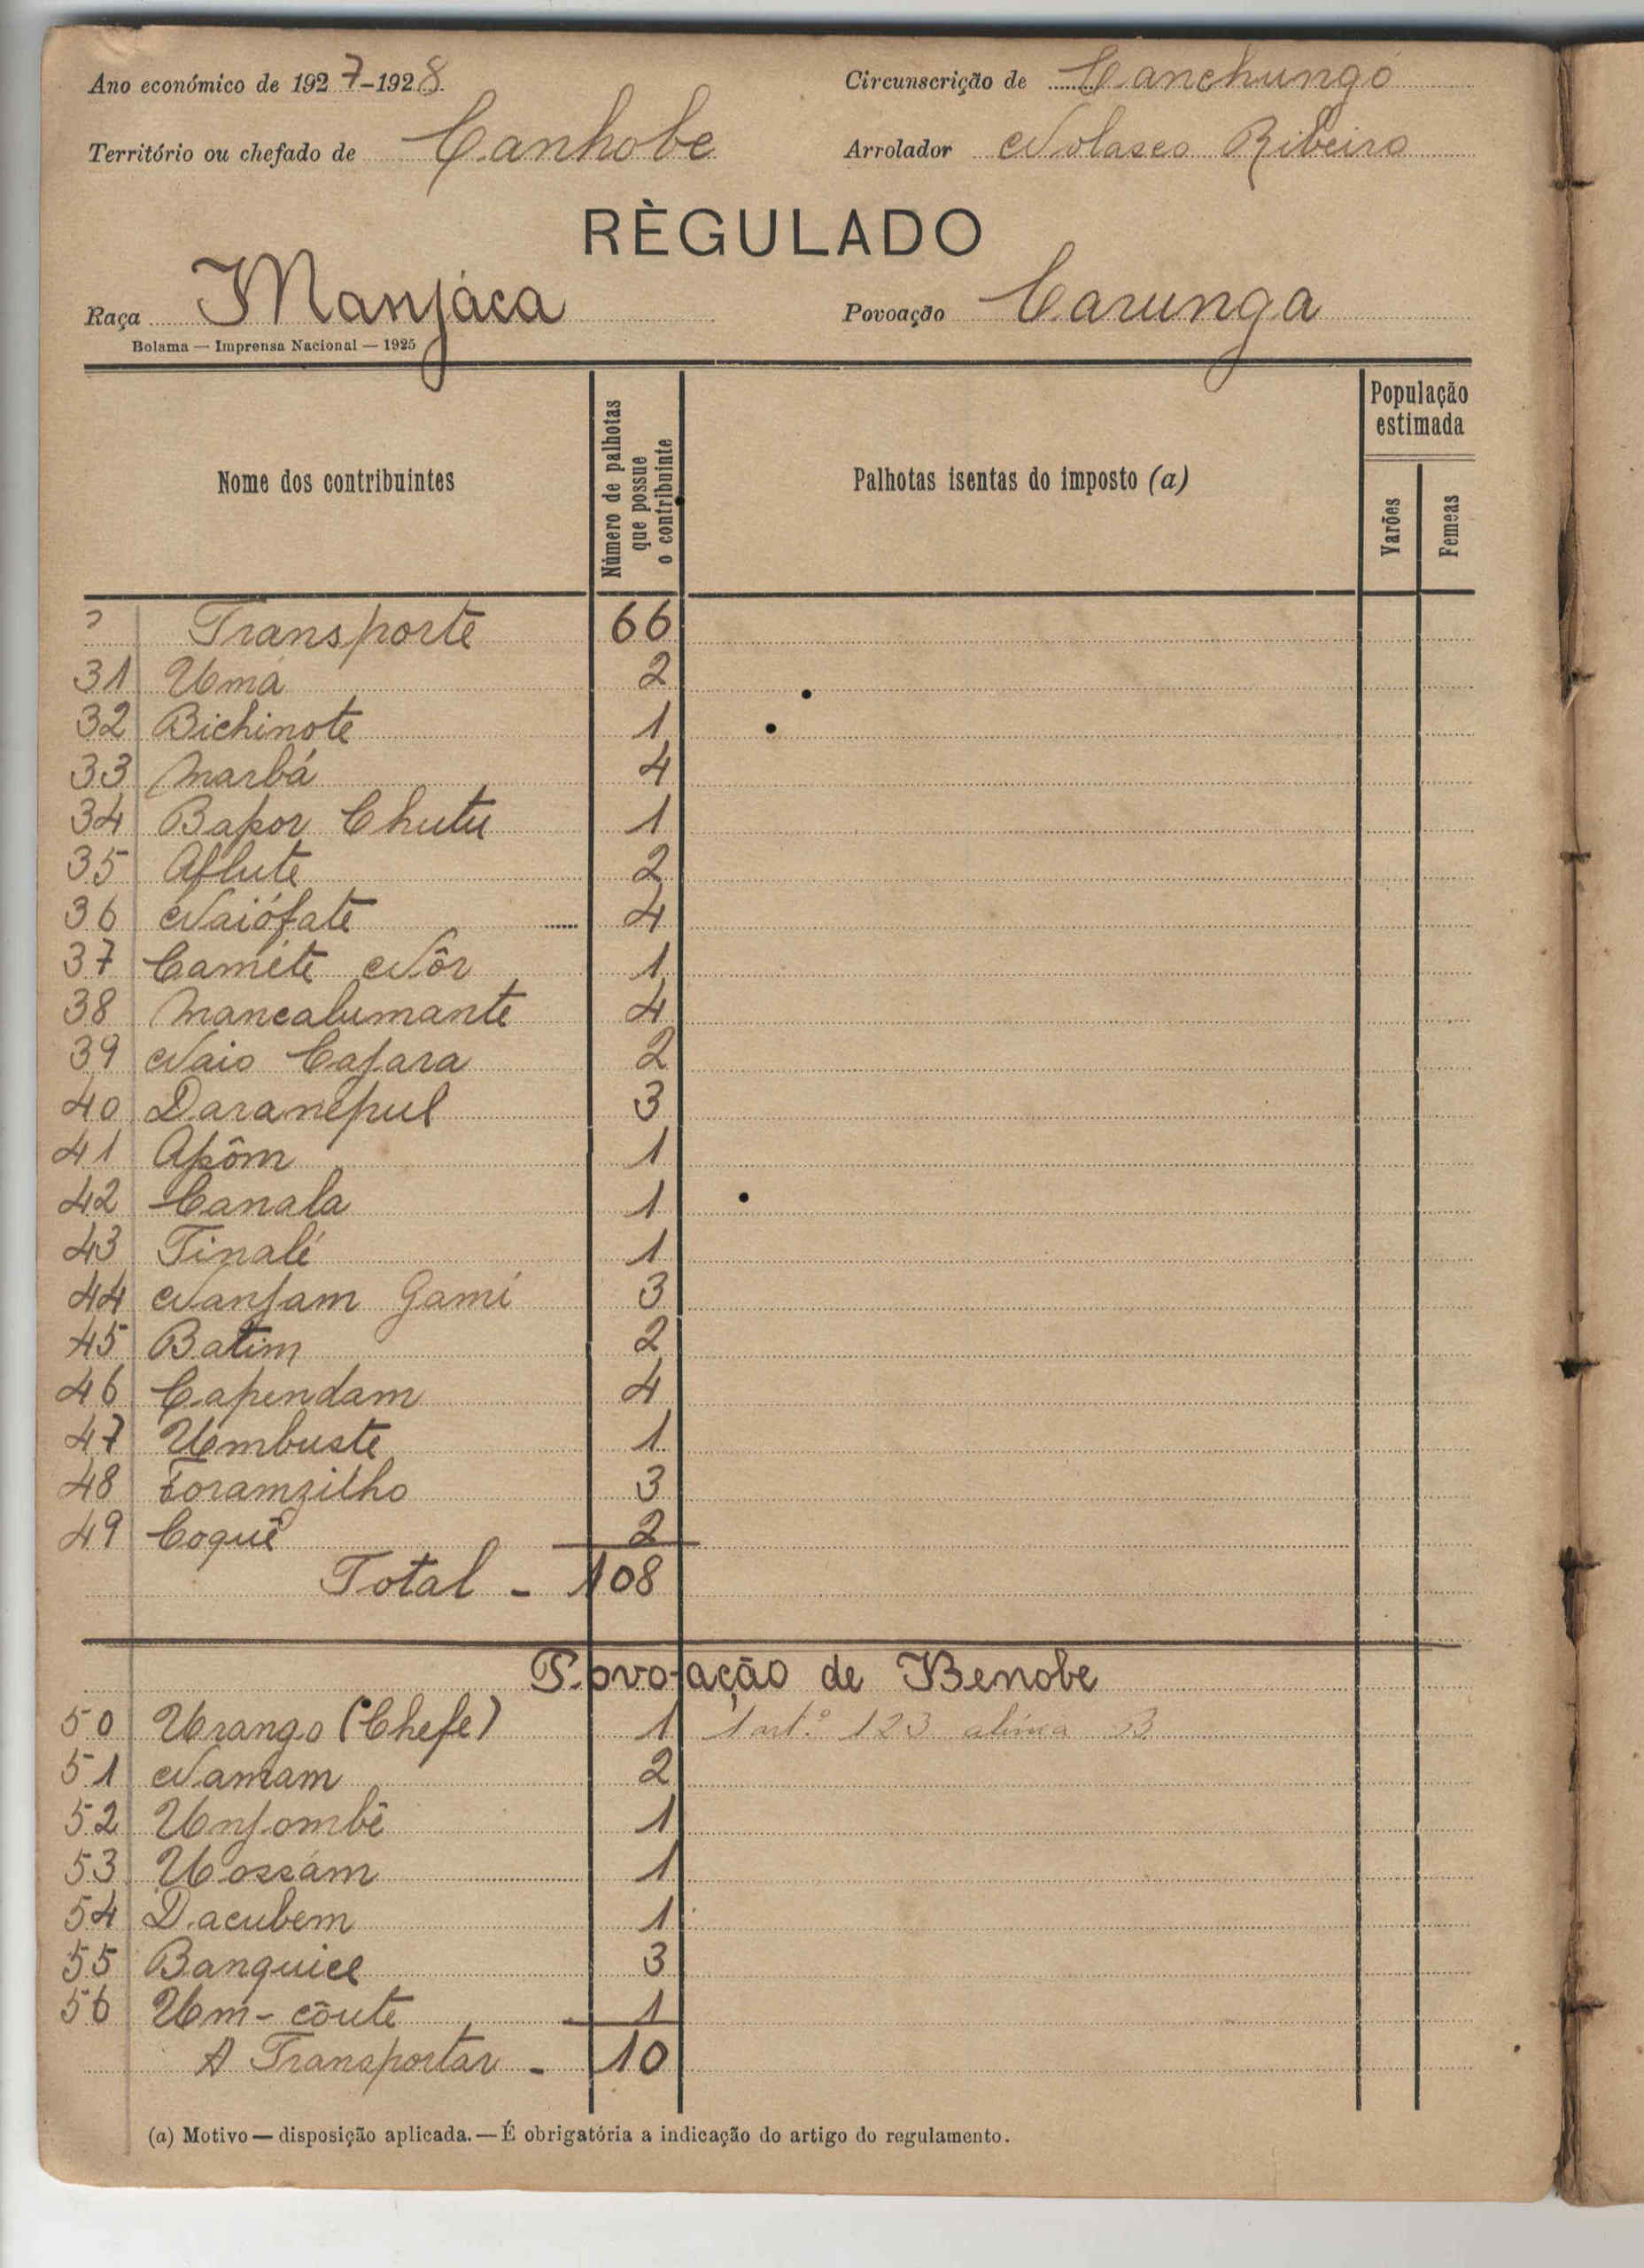 Ano económico de 1927-1928.
Circunscrição de Canchungo
Território ou chefado de Canhobe
Arrolador Nolasco Ribeiro
RÈGULADO
Raça Manjáca
Povoação Carunga
Bolama — Imprensa Nacional — 1925
Nome dos contribuintes
Número de palhotas que possue o contribuinte
Palhotas isentas do imposto (a)
População estimada
Varões
Femeas
Transporte 66
31 Umá 2
32 Bichinote 1
33 Marbá 4
34 Bapor Chutu 1
35 Aflute 2
36 Naiófate 4
37 Caméte Nôr 1
38 Mancalumante 4
39 Naio Cajara 2
40 Daranepul 3
41 Apôm 1
42 Canala 1
43 Tinalé 1
44 Nanjam Gamí 3
45 Batim 2
46 Capendam 4
47 Umbuste 1
48 Toramzilho 3
49 Coquê 2
Total - 108
Povoação de Benobe
50 Urango (Chefe) 1 1 art.º 123 alínea B
51 Namam 2
52 Unjombê 1
53 Uossám 1
54 Dacubem 1
55 Banquice 3
56 Um-côute 1
A Transportar - 10
(a) Motivo — disposição aplicada. — É obrigatória a indicação do artigo do regulamento.